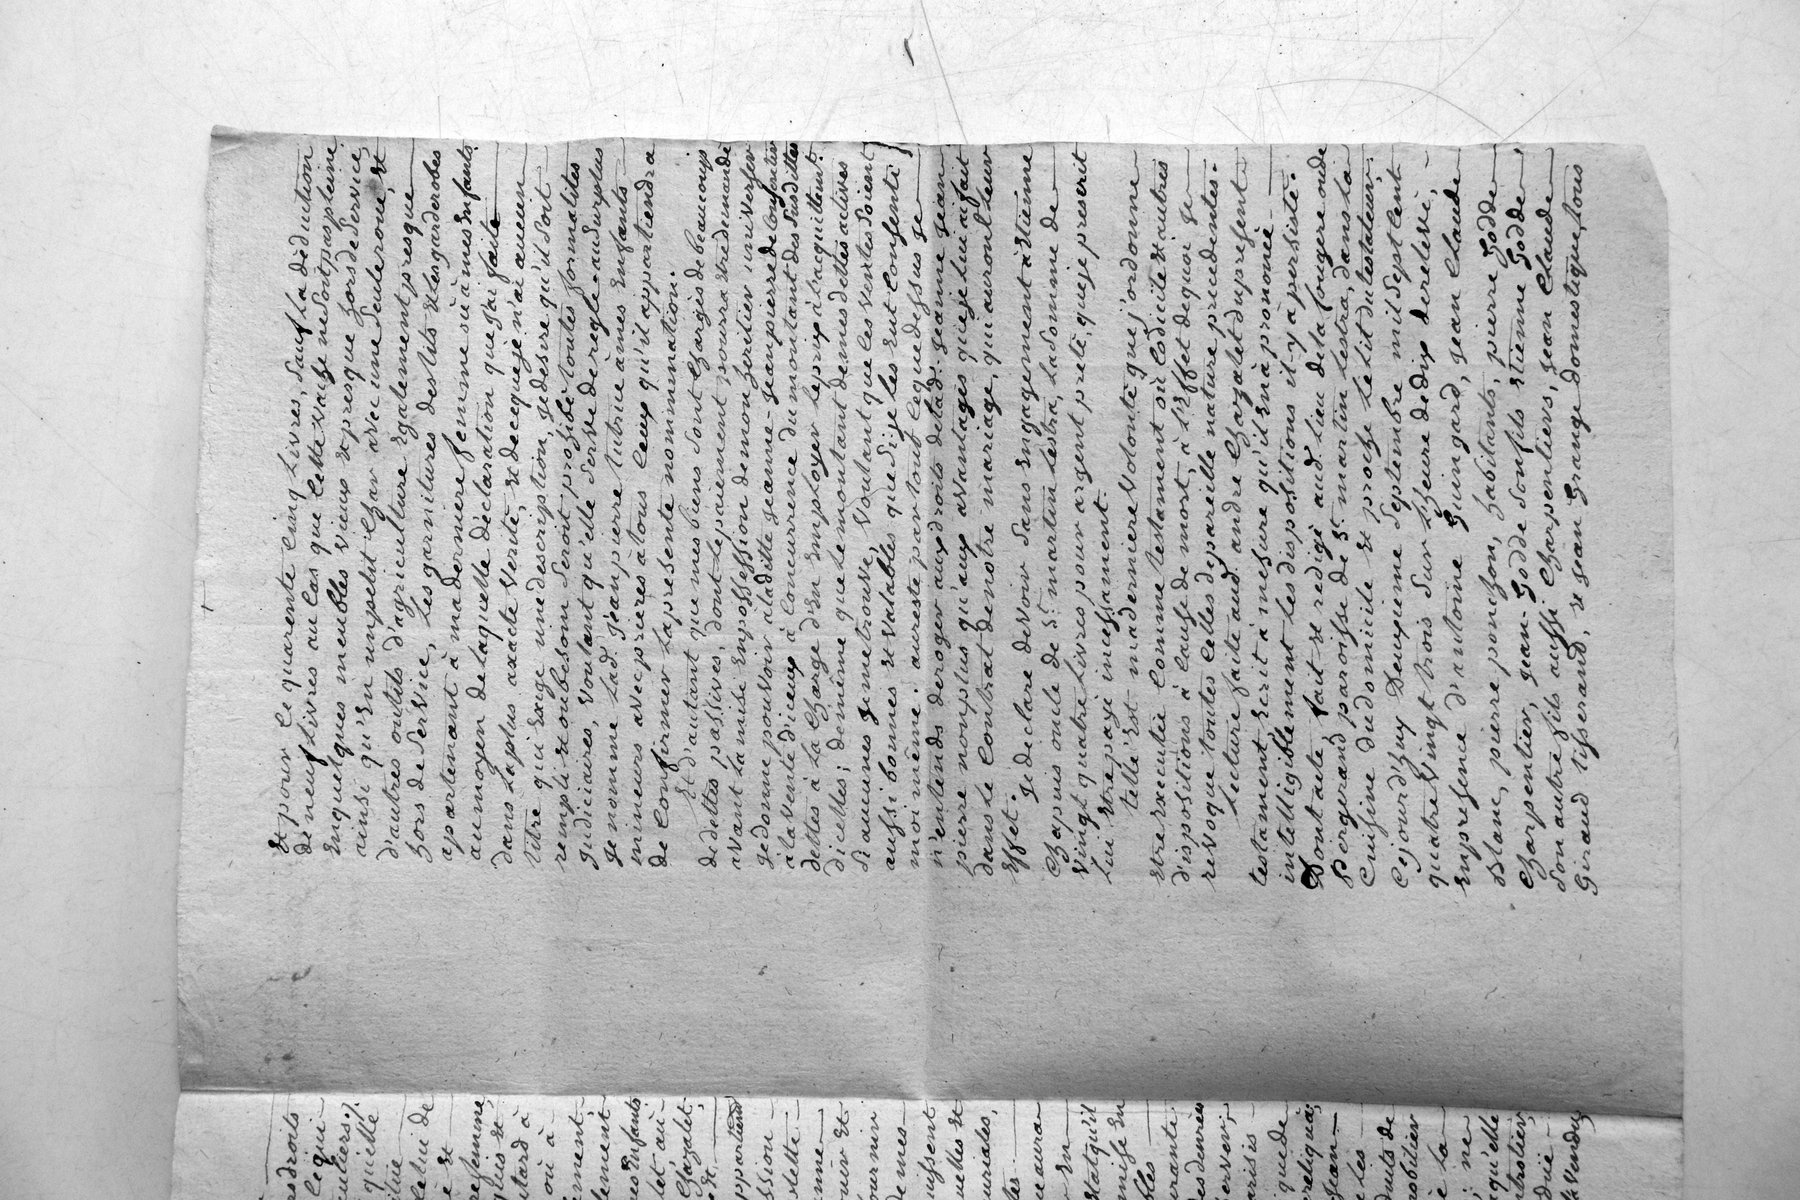 Et pour ce quarente cinq livres, sauf la dèdution
de neuf livres au cas que cette vache ne soit pas pleine
En quelques meubles vieux et presque hors de service,
ainsi qu'En un petit char avec une seule roue, et
d'autres outils d'agriculture Egalement presque
hors de service, les garnitures des lits et les garderobes
apartenant à ma derniere femme ou à mes Enfants.
au moyen de laquelle dèclaration que j'ai faite
dans la plus exacte verité, et de ce que je n'ai aucun
titre qui Exige une description, je desire qu'il soit
rempli et ou besoin seroit prohibé toutes formalites
judiciaires, voulant qu'elle serve de règle au surplus
je nomme lad. jeanpierre tutrice à mes Enfants
mineurs avec prieres a tous ceux qu'il appartiendra
de Confirmer la presente nommination.
Et d'autant que mes biens sont chargés de beaucoup
de dettes passives, dont le paiement pourra etre demandé
avant la mise En possession de mon heritier universer
je donne pouvoir a laditte jeanne-jeanpierre de consentir
à la vente d'iceux à concurrence du montant des susdittes
dettes à la charge d'En Employer le prix à l'acquittement
dicelles; de même que le montant de mes dettes actives
si aucunes je me trouve, voulant que les ventes soient
aussi bonnes et valables que si je les eut consenti
moi même. au reste par tout ce que dessus je
n'entends deroger aux droits de lad. jeanne jean
pierre non plus qu'aux avantages que je lui ai fait
dans le Contrat de notre mariage, qui auront leur
Effet.
je declare devoir sans Engagement à Etienne
Chapuis oncle de St. martin lestra, la somme de
vingt quatre livres pour argent preté, que je prescrit
lui Etre payé incessament.
telle Est ma derniere volonté que j'ordonne
etre Executée comme testament où Codicile et autres
dispositions à cause de mort, à l'Effet de quoi je
revoque toutes celles de pareille nature precedentes.
Lecture faite aud. andré Chazalet du present
testament Ecrit à mesure qu'il En à prononcé
intelligiblement les dispositions il y à persisté.
Dont acte, fait et redigé aud. lieu de la fougere oude
Bergerand paroisse de St. martin lestra, dans la
Cuisine du domicile et proche le lit du testateur,
Cejourd'huy Deuxieme Septembre mil sept cent
quatre vingt trois sur l'heure de dix de relevé,
En presence d'antoine Guingard, jean Claude
Blanc, pierre ponchon, habitants, pierre Godde
Charpentier, jean-Godde son fils Etienne Godde
son autre fils aussi Charpentiers, jean Claude
Giraud tisserand, et jean Grange domestique, tous